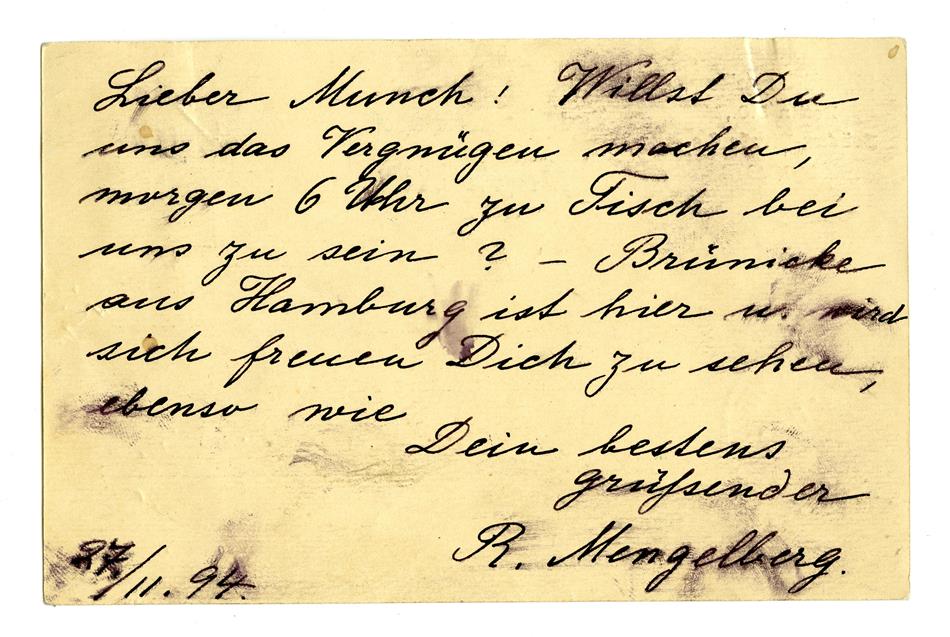 Lieber Munch! Willst Du
uns das Vergnügen machen,
morgen 6 Uhr zu Tisch bei
uns zu sein? – Brünicke
aus Hamburg ist hier u. wird
sich freuen Dich zu sehen,
ebenso wie
Dein bestens
grüßender
R. Mengelberg.
27/11. 94.